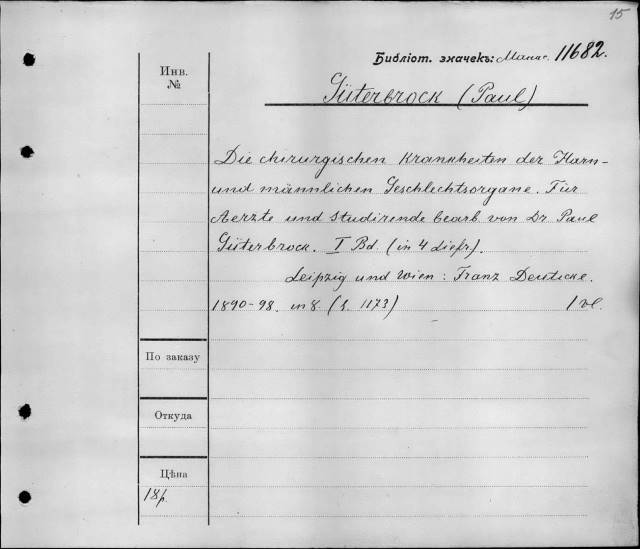 15
Библiот. значекъ: Манас. 11682.
Инв.
№
Güterbrock (Paul)
Die chirurgischen Krankheiten der Harn-
und männlichen Geschlechtsorgane. Für
Aerzte und Studirende bearb. von Dr Paul
Güterbrock. I Bd (in 4 Liefr).
Leipzig und Wien: Franz Deuticke.
1890-98. in 8. (S. 1173) 1 vl.
По заказу
Откуда
Цѣна
18р.